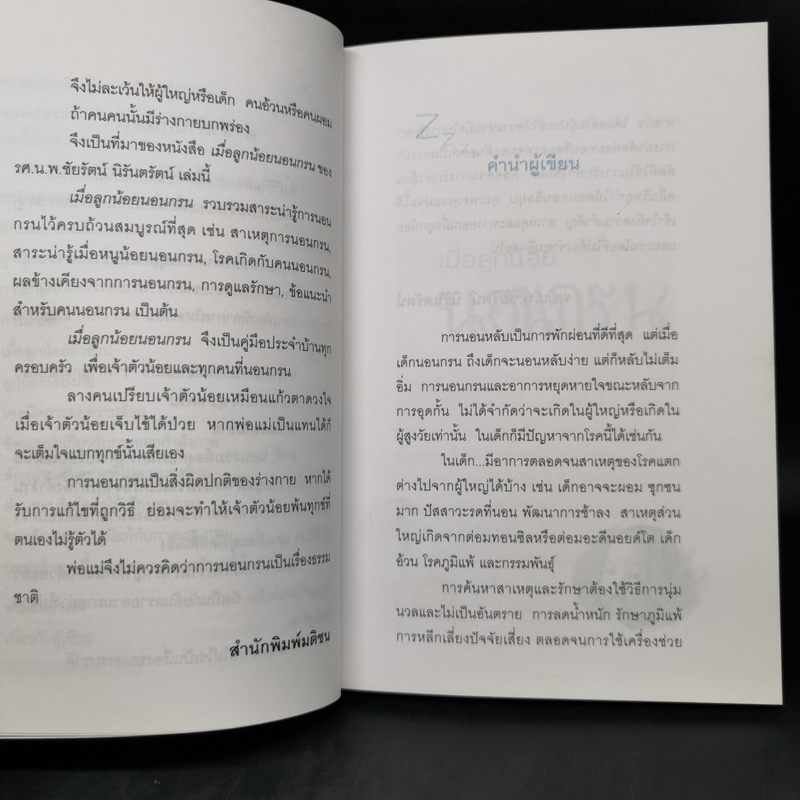 จึงไม่ละเว้นให้ผู้ใหญ่หรือเด็ก คนอ้วนหรือคนผอม
ถ้าคนคนนั้นมีร่างกายบกพร่อง
จึงเป็นที่มาของหนังสือ เมื่อลูกน้อยนอนกรน ของ
รศ.น.พ.ชัยรัตน์ นิรันตรัตน์ เล่มนี้
เมื่อลูกน้อยนอนกรน รวบรวมสาระน่ารู้การนอน
กรนไว้ครบถ้วนสมบูรณ์ที่สุด เช่น สาเหตุการนอนกรน,
สาระน่ารู้เมื่อหนูน้อยนอนกรน, โรคเกิดกับคนนอนกรน,
ผลข้างเคียงจากการนอนกรน, การดูแลรักษา, ข้อแนะนำ
สำหรับคนนอนกรน เป็นต้น
เมื่อลูกน้อยนอนกรน จึงเป็นคู่มือประจำบ้านทุก
ครอบครัว เพื่อเจ้าตัวน้อยและทุกคนที่นอนกรน
ลางคนเปรียบเจ้าตัวน้อยเหมือนแก้วตาดวงใจ
เมื่อเจ้าตัวน้อยเจ็บไข้ได้ป่วย หากพ่อแม่เป็นแทนได้ก็
จะเต็มใจแบกทุกข์นั้นเสียเอง
การนอนกรนเป็นสิ่งผิดปกติของร่างกาย หากได้
รับการแก้ไขที่ถูกวิธี ย่อมจะทำให้เจ้าตัวน้อยพ้นทุกข์ที่
ตนเองไม่รู้ตัวได้
พ่อแม่จึงไม่ควรคิดว่าการนอนกรนเป็นเรื่องธรรม
ชาติ
สำนักพิมพ์มติชน
Zzz...
คำนำผู้เขียน
การนอนหลับเป็นการพักผ่อนที่ดีที่สุด แต่เมื่อ
เด็กนอนกรน ถึงเด็กจะนอนหลับง่าย แต่ก็หลับไม่เต็ม
อิ่ม การนอนกรนและอาการหยุดหายใจขณะหลับจาก
การอุดกั้น ไม่ได้จำกัดว่าจะเกิดในผู้ใหญ่หรือเกิดใน
ผู้สูงวัยเท่านั้น ในเด็กก็มีปัญหาจากโรคนี้ได้เช่นกัน
ในเด็ก...มีอาการตลอดจนสาเหตุของโรคแตก
ต่างไปจากผู้ใหญ่ได้บ้าง เช่น เด็กอาจจะผอม ซุกซน
มาก ปัสสาวะรดที่นอน พัฒนาการช้าลง สาเหตุส่วน
ใหญ่เกิดจากต่อมทอนซิลหรือต่อมอะดีนอยด์โต เด็ก
อ้วน โรคภูมิแพ้ และกรรมพันธุ์
การค้นหาสาเหตุและรักษาต้องใช้วิธีการนุ่ม
นวลและไม่เป็นอันตราย การลดน้ำหนัก รักษาภูมิแพ้
การหลีกเลี่ยงปัจจัยเสี่ยง ตลอดจนการใช้เครื่องช่วย